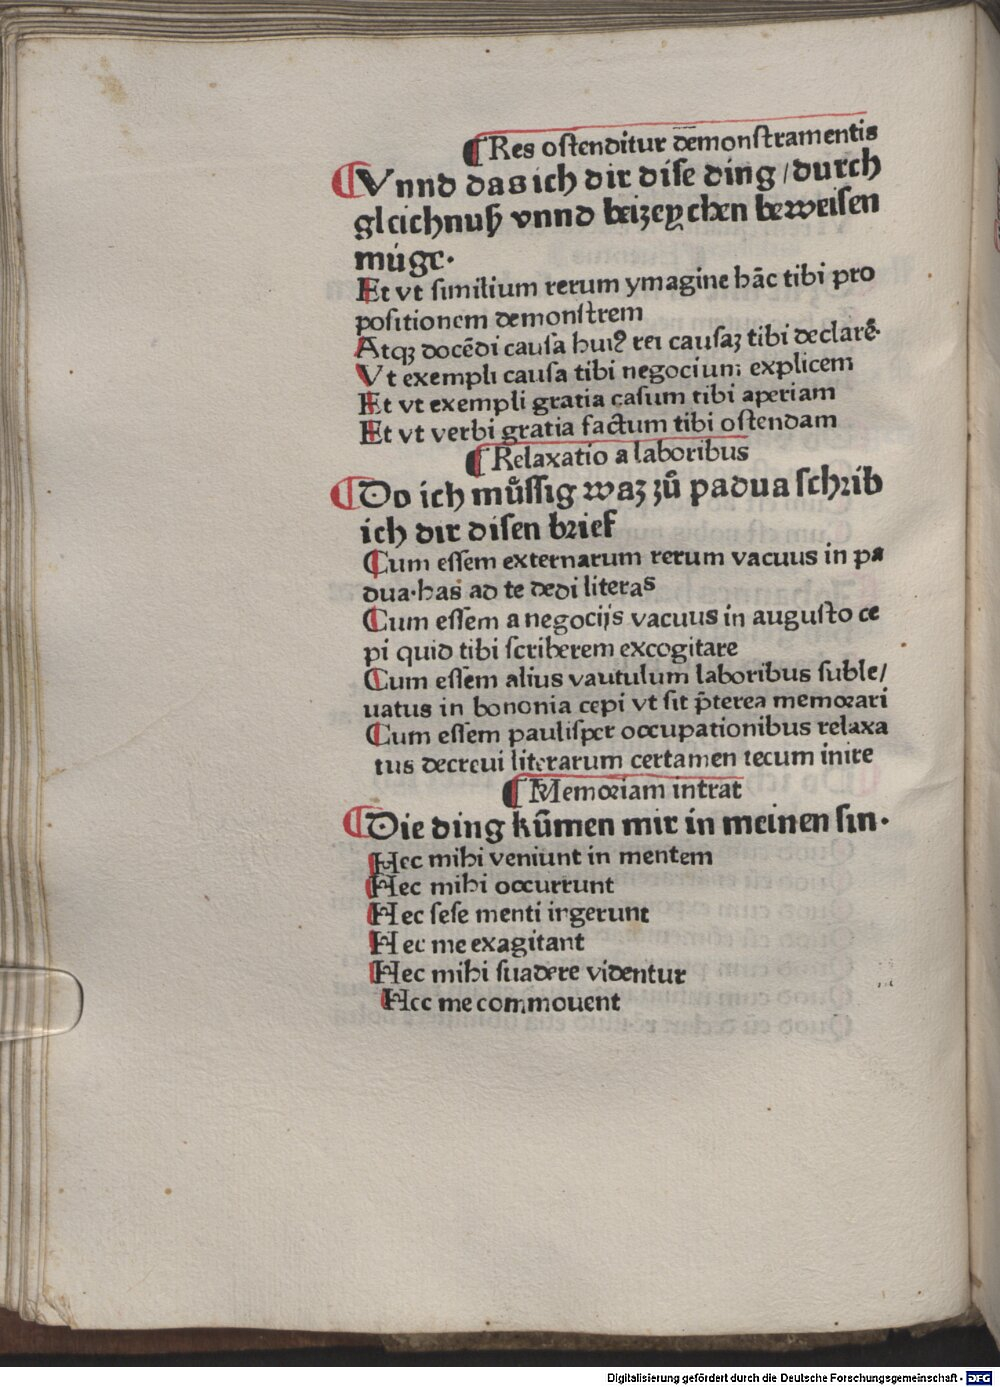 ¶ Res ostenditur demonstramentis
¶ Vnnd das ich dir dise ding / durch
gleichnuß vnnd beizeychen beweisen
múge.
Et vt similium rerum ymagine hāc tibi pro
positionem demonstrem
Atqꝫ docēdi causa huiꝰ rei causaꝫ tibi declarē.
Vt exempli causa tibi negocium explicem
Et vt exempli gratia casum tibi aperiam
Et vt verbi gratia factum tibi ostendam
¶ Relaxatio a laboribus
¶ Do ich můssig waz zů padua schrib
ich dir disen brief
Cum essem externarum rerum vacuus in pa
dua·has ad te dedi literas
Cum essem a negocijs vacuus in augusto ce
pi quid tibi scriberem excogitare
Cum essem alius vautulum laboribus suble/
uatus in bononia cepi vt sit p̄terea memorari
Cum essem paulisper occupationibus relaxa
tus decreui literarum certamen tecum inire
¶ Memoriam intrat
¶ Die ding kūmen mir in meinen sin.
Hec mihi veniunt in mentem
Hec mihi occurrunt
Hec sese menti ingerunt
Hec me exagitant
Hec mihi suadere videntur
Hec me commouent
Digitalisierung gefördert durch die Deutsche Forschungsgemeinschaft - DFG